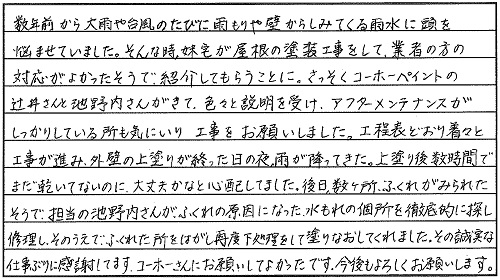 数年前から大雨や台風のたびに雨もりや壁からしみてくる雨水に頭を
悩ませていました。そんな時、妹宅が屋根の塗装工事をして、業者の方の
対応がよかったそうで紹介してもらうことに。さっそくコーホーペイントの
辻井さんと池野内さんがきて、色々と説明を受け、アフターメンテナンスが
しっかりしている所も気にいり 工事をお願いしました。工程表どおり着々と
工事が進み、外壁の上塗りが終った日の夜、雨が降ってきた。上塗り後数時間で
まだ乾いてないのに、大丈夫かなと心配してました。後日、数ヶ所、ふくれがみられた
そうで、担当の池野内さんが、ふくれの原因になった、水もれの個所を徹底的に探し
修理し、そのうえで、ふくれた所をはがし再度下処理をして塗りなおしてくれました。その誠実な
仕事ぶりに感謝してます。コーホーさんにお願いしてよかったです。今後もよろしくお願いします。